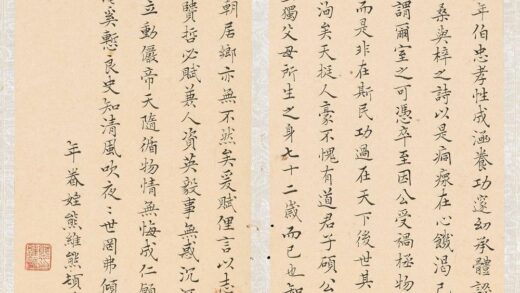 年伯忠孝性成涵養功邃幼承體認
桑與梓之詩以是痌瘝在心饑渴已
謂爾室之可憑卒至因公受禍極物
而是非在斯民功過在天下後世其
洵矣天挺人豪不愧有道君子碩公
獨父母所生之身七十二歲而已也知
朝居鄉亦無不然矣爰賦俚言以志
哲必賦兼人資英毅事無惑沉
立動儼帝天隨循物情無悔成仁願
奚慙良史知清風吹夜〻世罔弗傾
年眷姪熊維熊頓